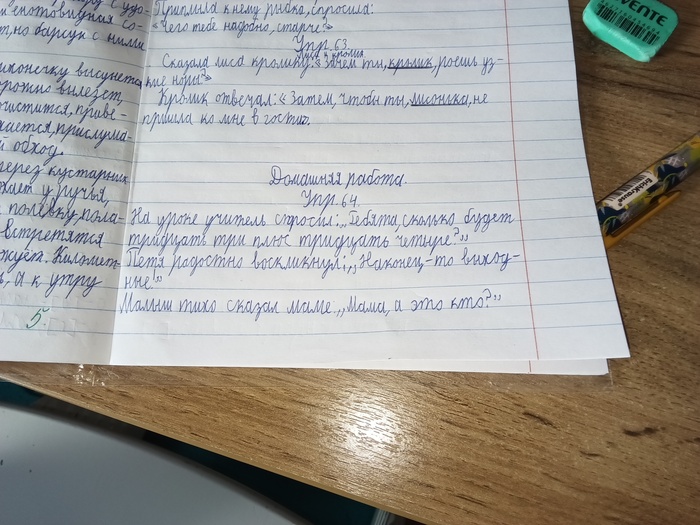 и енотовидная со-
т, но барсук с ними
высунется
вылезет,
прислуша-
й обход.
через кустарник
у ручья,
полевку пола-
встретятся
Километ-
а к утру
5.
Приплыла к нему рыбка, спросила:
«Чего тебе надобно, старче?»
Упр. 63.
Лиса и кролик
Сказала лиса кролику: «Зачем ты, кролик, роешь уз-
кие норы?»
Кролик отвечал: «Затем, чтобы ты, лисонька, не
пришла ко мне в гости».
Домашняя работа.
Упр. 64.
На уроке учитель спросил: „Ребята, сколько будет
тридцать три плюс тридцать четыре?"
Петя радостно воскликнул: „Наконец-то выход-
ные!"
Малыш тихо сказал маме „Мама, а это кто?"
VENTE
ErichKrause